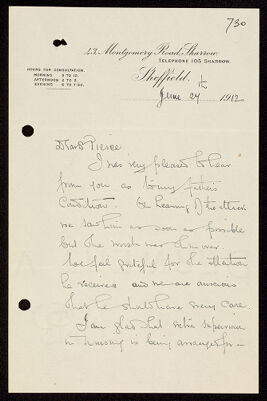 730
43, Montgomery Road, Sharrow,
TELEPHONE 105 SHARROW.
Sheffield.
HOURS FOR CONSULTATION.
MORNING 9 TO 10.
AFTERNOON 2 TO 3.
EVENING 6 TO 7.30.
June 24th 1912
Dear Pierce
I was very pleased to hear
from you as to my father's
condition. On hearing of the attack
we saw him as soon as possible
but the worst was then over.
We feel grateful for the attention
he receives and we are anxious
that he should have every care
I am glad that extra supervision
in nursing is being arranged for -